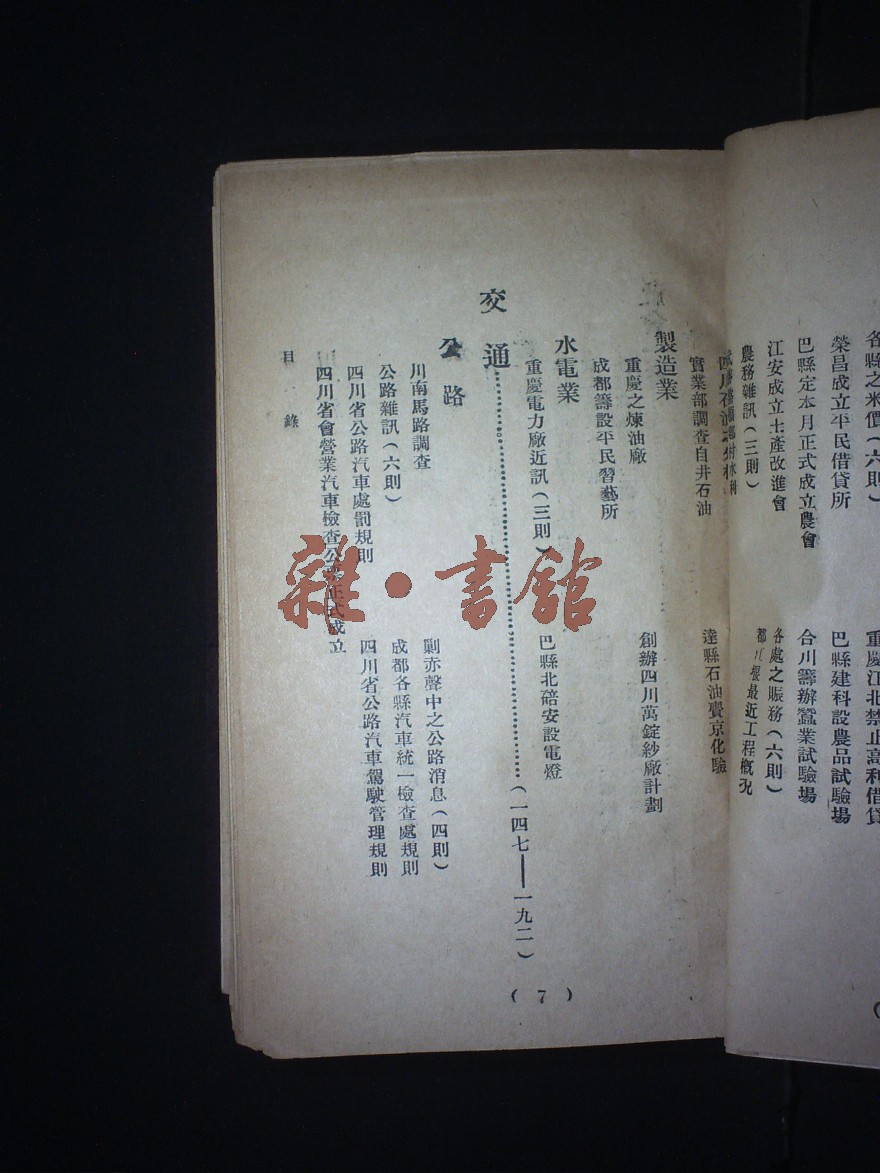 各縣之米價（六則）
重慶江北禁止高利借貸
榮昌成立平民借貸所
巴縣建科設農品試驗場
巴縣定本月正式成立農會
合川籌辦蠶業試驗場
江安成立土產改進會
各處之賑務（六則）
農務雜訊（三則）
最近工程概況
實業部調查自井石油
達縣石油賫京化驗
製造業
重慶之煉油廠
創辦四川萬錠紗廠計劃
成都籌設平民習藝所
水電業
重慶電力廠近訊（三則）
巴縣北碚安設電燈
交通（一四七——一九二）
公路
川南馬路調查
剿赤聲中之公路消息（四則）
公路雜訊（六則）
成都各縣汽車統一檢查處規則
四川省公路汽車處罰規則
四川省公路汽車駕駛管理規則
四川省會營業汽車檢查正式成立
目錄
（7）
雜·書館